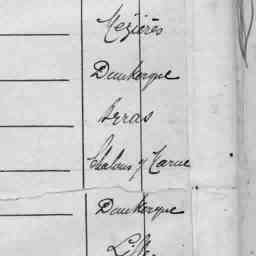 Mezières
Dunkerque
Arras
Chalons s/ Marne
Dunkerque
Lille